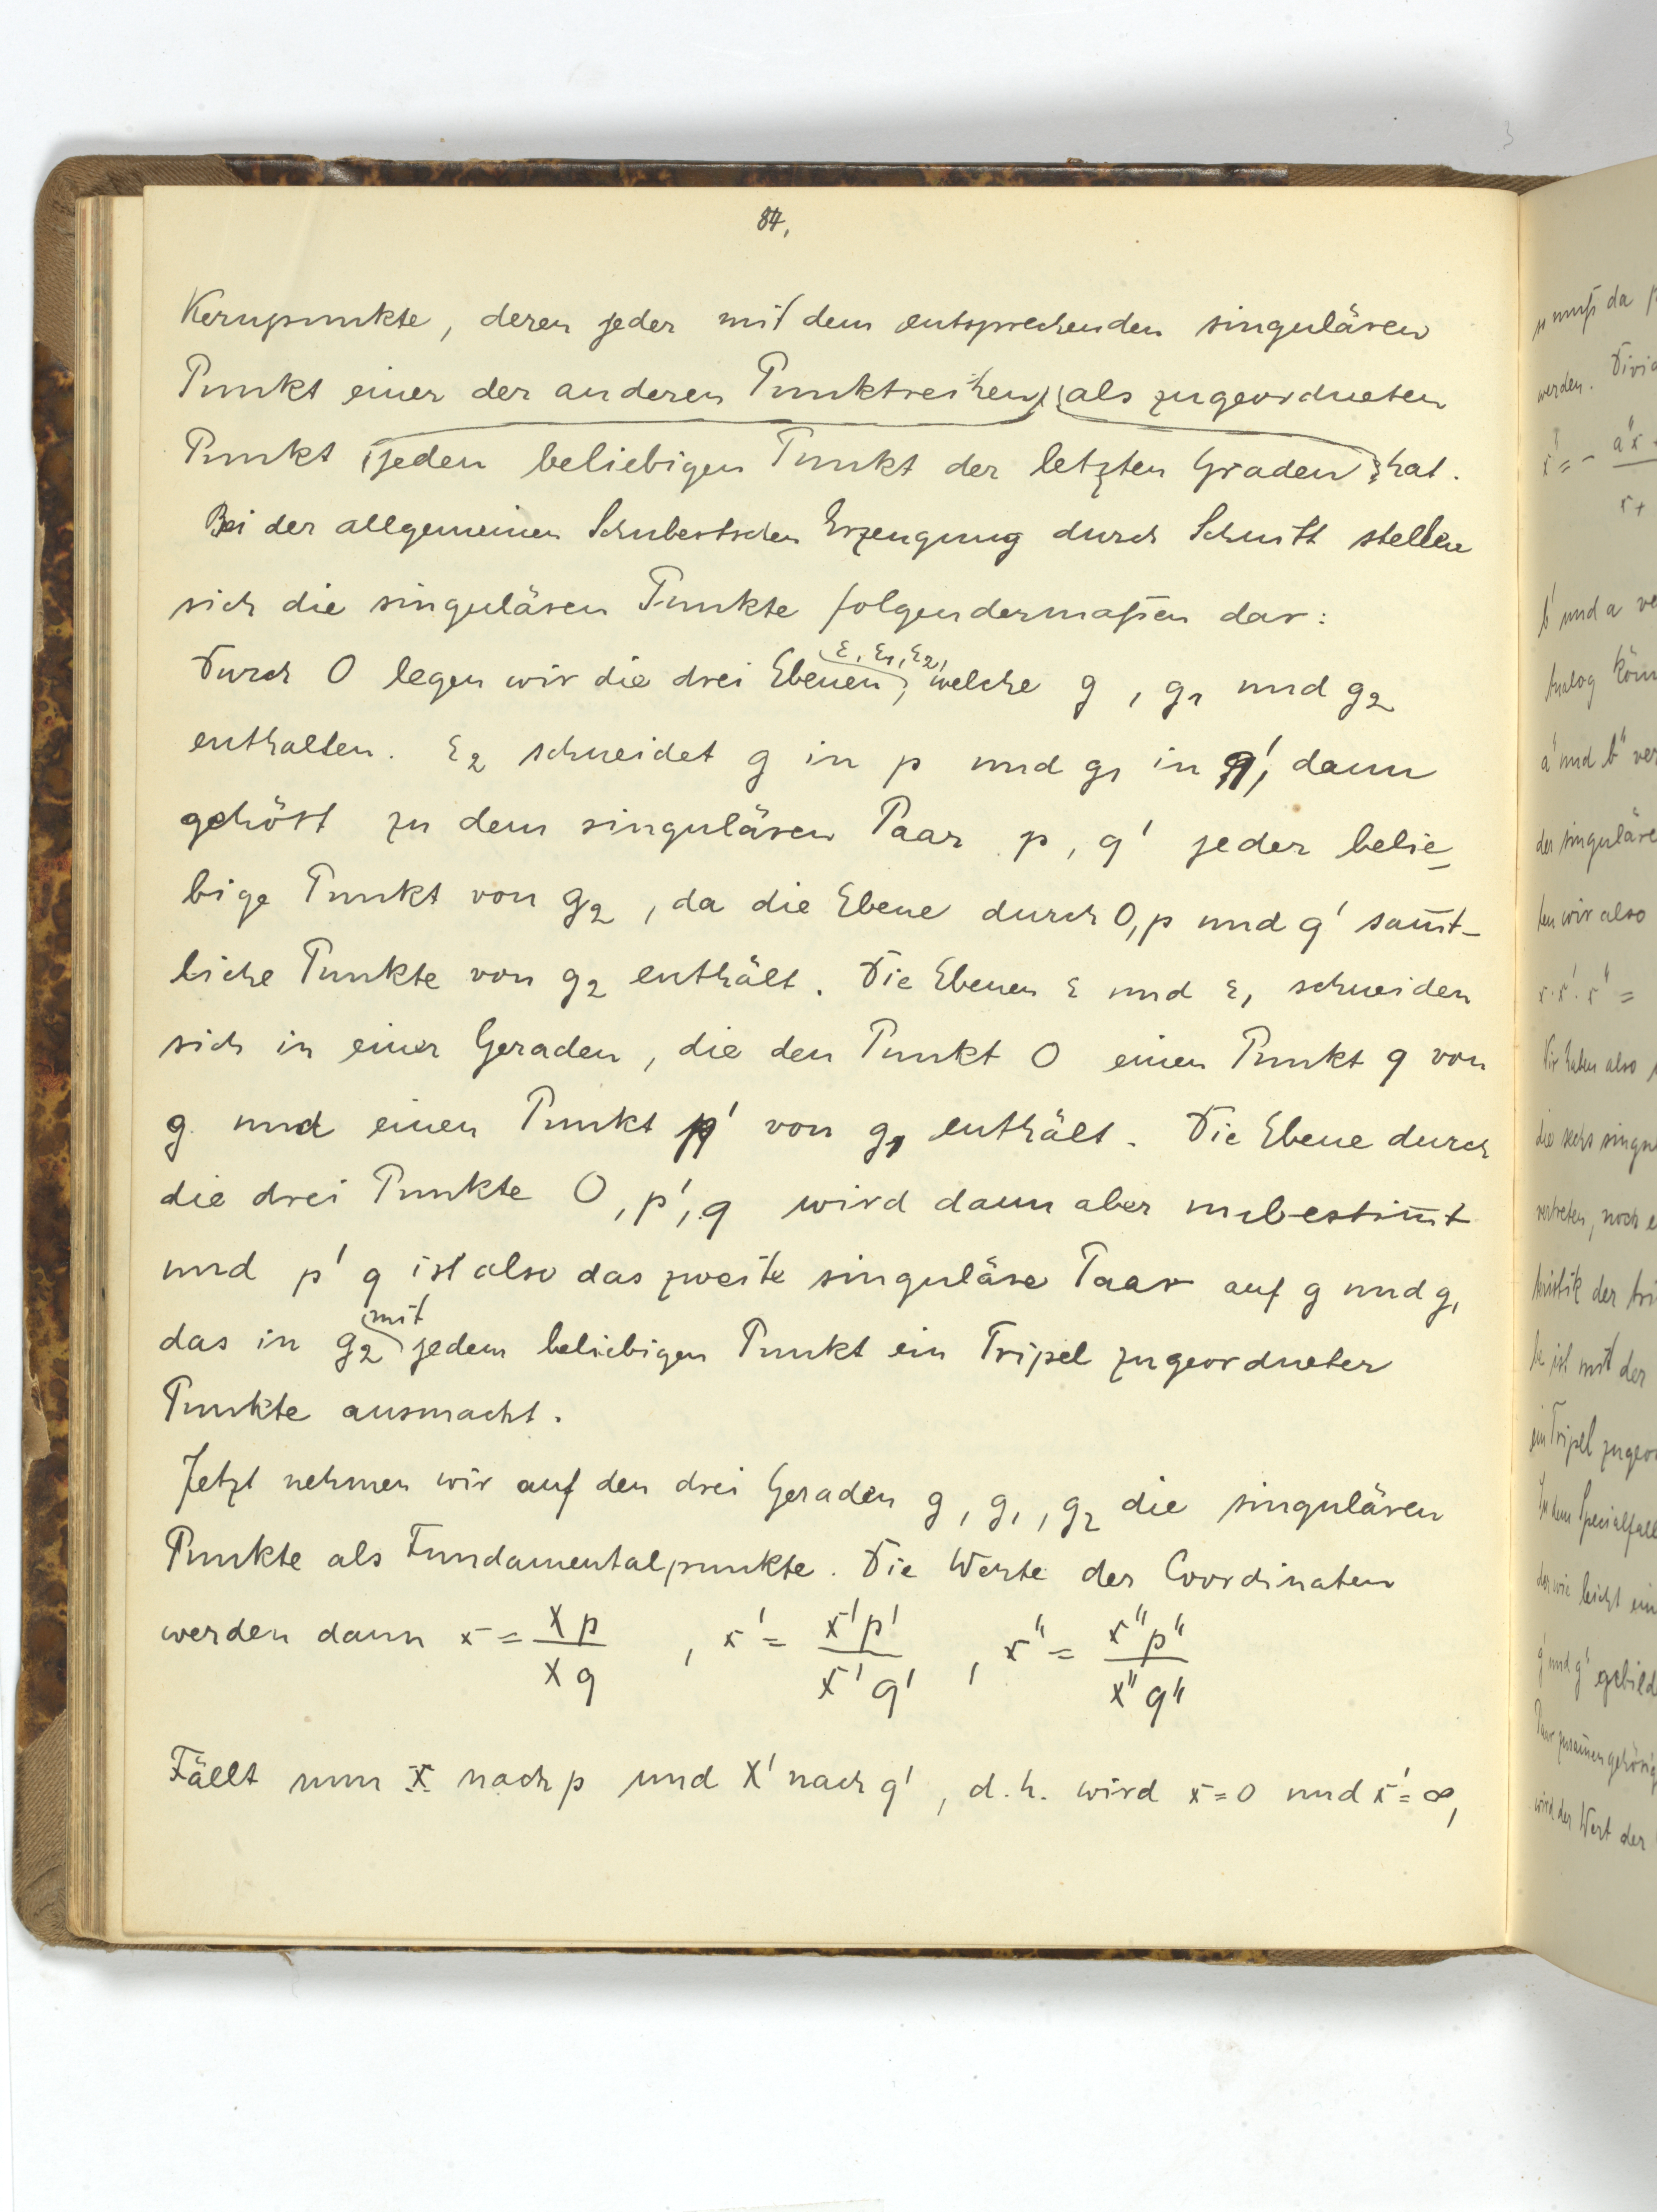 84,
Kernpunkte, deren jeder mit dem entsprechenden singulären
Punkt einer der anderen Punktreihen als zugeordneten
Punkt jeden beliebigen Punkt der letzten Graden hat.
Bei der allgemeinen Schubertschen Erzeugung durch Schnitt stellen
sich die singulären Punkte folgendermaßen dar:
ε, ε₁, ε₂,
Durch O legen wir die drei Ebenen, welche g, g₁ und g₂
enthalten. ε₂ schneidet g in p und g₁ in q', dann
gehört zu dem singulären Paar p, q' jeder belie=
bige Punkt von g₂, da die Ebene durch O, p und q' sam̅t-
liche Punkte von g₂ enthält. Die Ebenen ε und ε₁ schneiden
sich in einer Geraden, die den Punkt O einen Punkt q von
g und einen Punkt p' von g₁ enthält. Die Ebene durch
die drei Punkte O, p', q wird dann aber unbestim̅t
und p' q ist also das zweite singuläre Paar auf g und g₁
mit
das in g₂ jedem beliebigen Punkt ein Tripel zugeordneter
Punkte ausmacht.
Jetzt nehmen wir auf den drei Geraden g, g₁, g₂ die singulären
Punkte als Fundamentalpunkte. Die Werte der Coordinaten
werden dann x = Xp/Xq , x' = X'p'/X'q' , x'' = X''p''/X''q''
Fällt nun X nach p und X' nach q', d.h. wird x=0 und x'=∞,
u muß da
werden.
x'' = - a''x
x +
b' und a
Analog
a' und b''
der singuläre
ten wir also
x·x'·x'' =
Wir haben also
die sechs
vertreten, noch
ristik der
ist mit der
ein Tripel
In dem Specialfall
der wie leicht ein
g' und g''
Paar
wird der Wert der